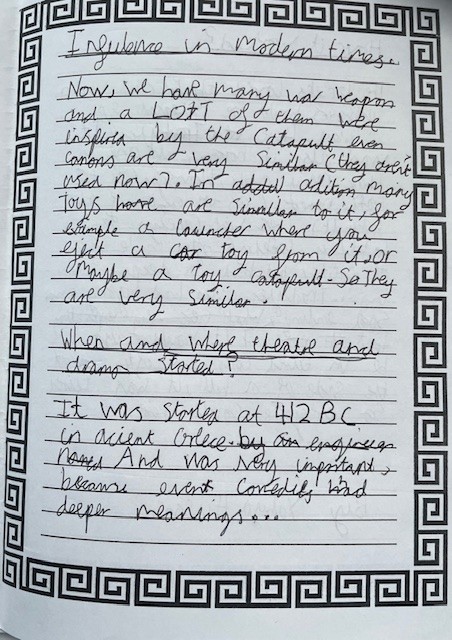 Infulence in modern times.
Now, we have many war weapon
and a LOT of them were
inspired by the Catapult even
canons are very similar (they aren't
used now). In addtul adition many
Toys have are simmilar to it, for
example a launcher where you
eject a car toy from it, or
Maybe a Toy catapult. So They
are very similar.
When and where theatre and
drama started?
It was started at 412 BC
in acient Grece. by an engineer
named And was very important,
because even comedies had
deeper meanings...